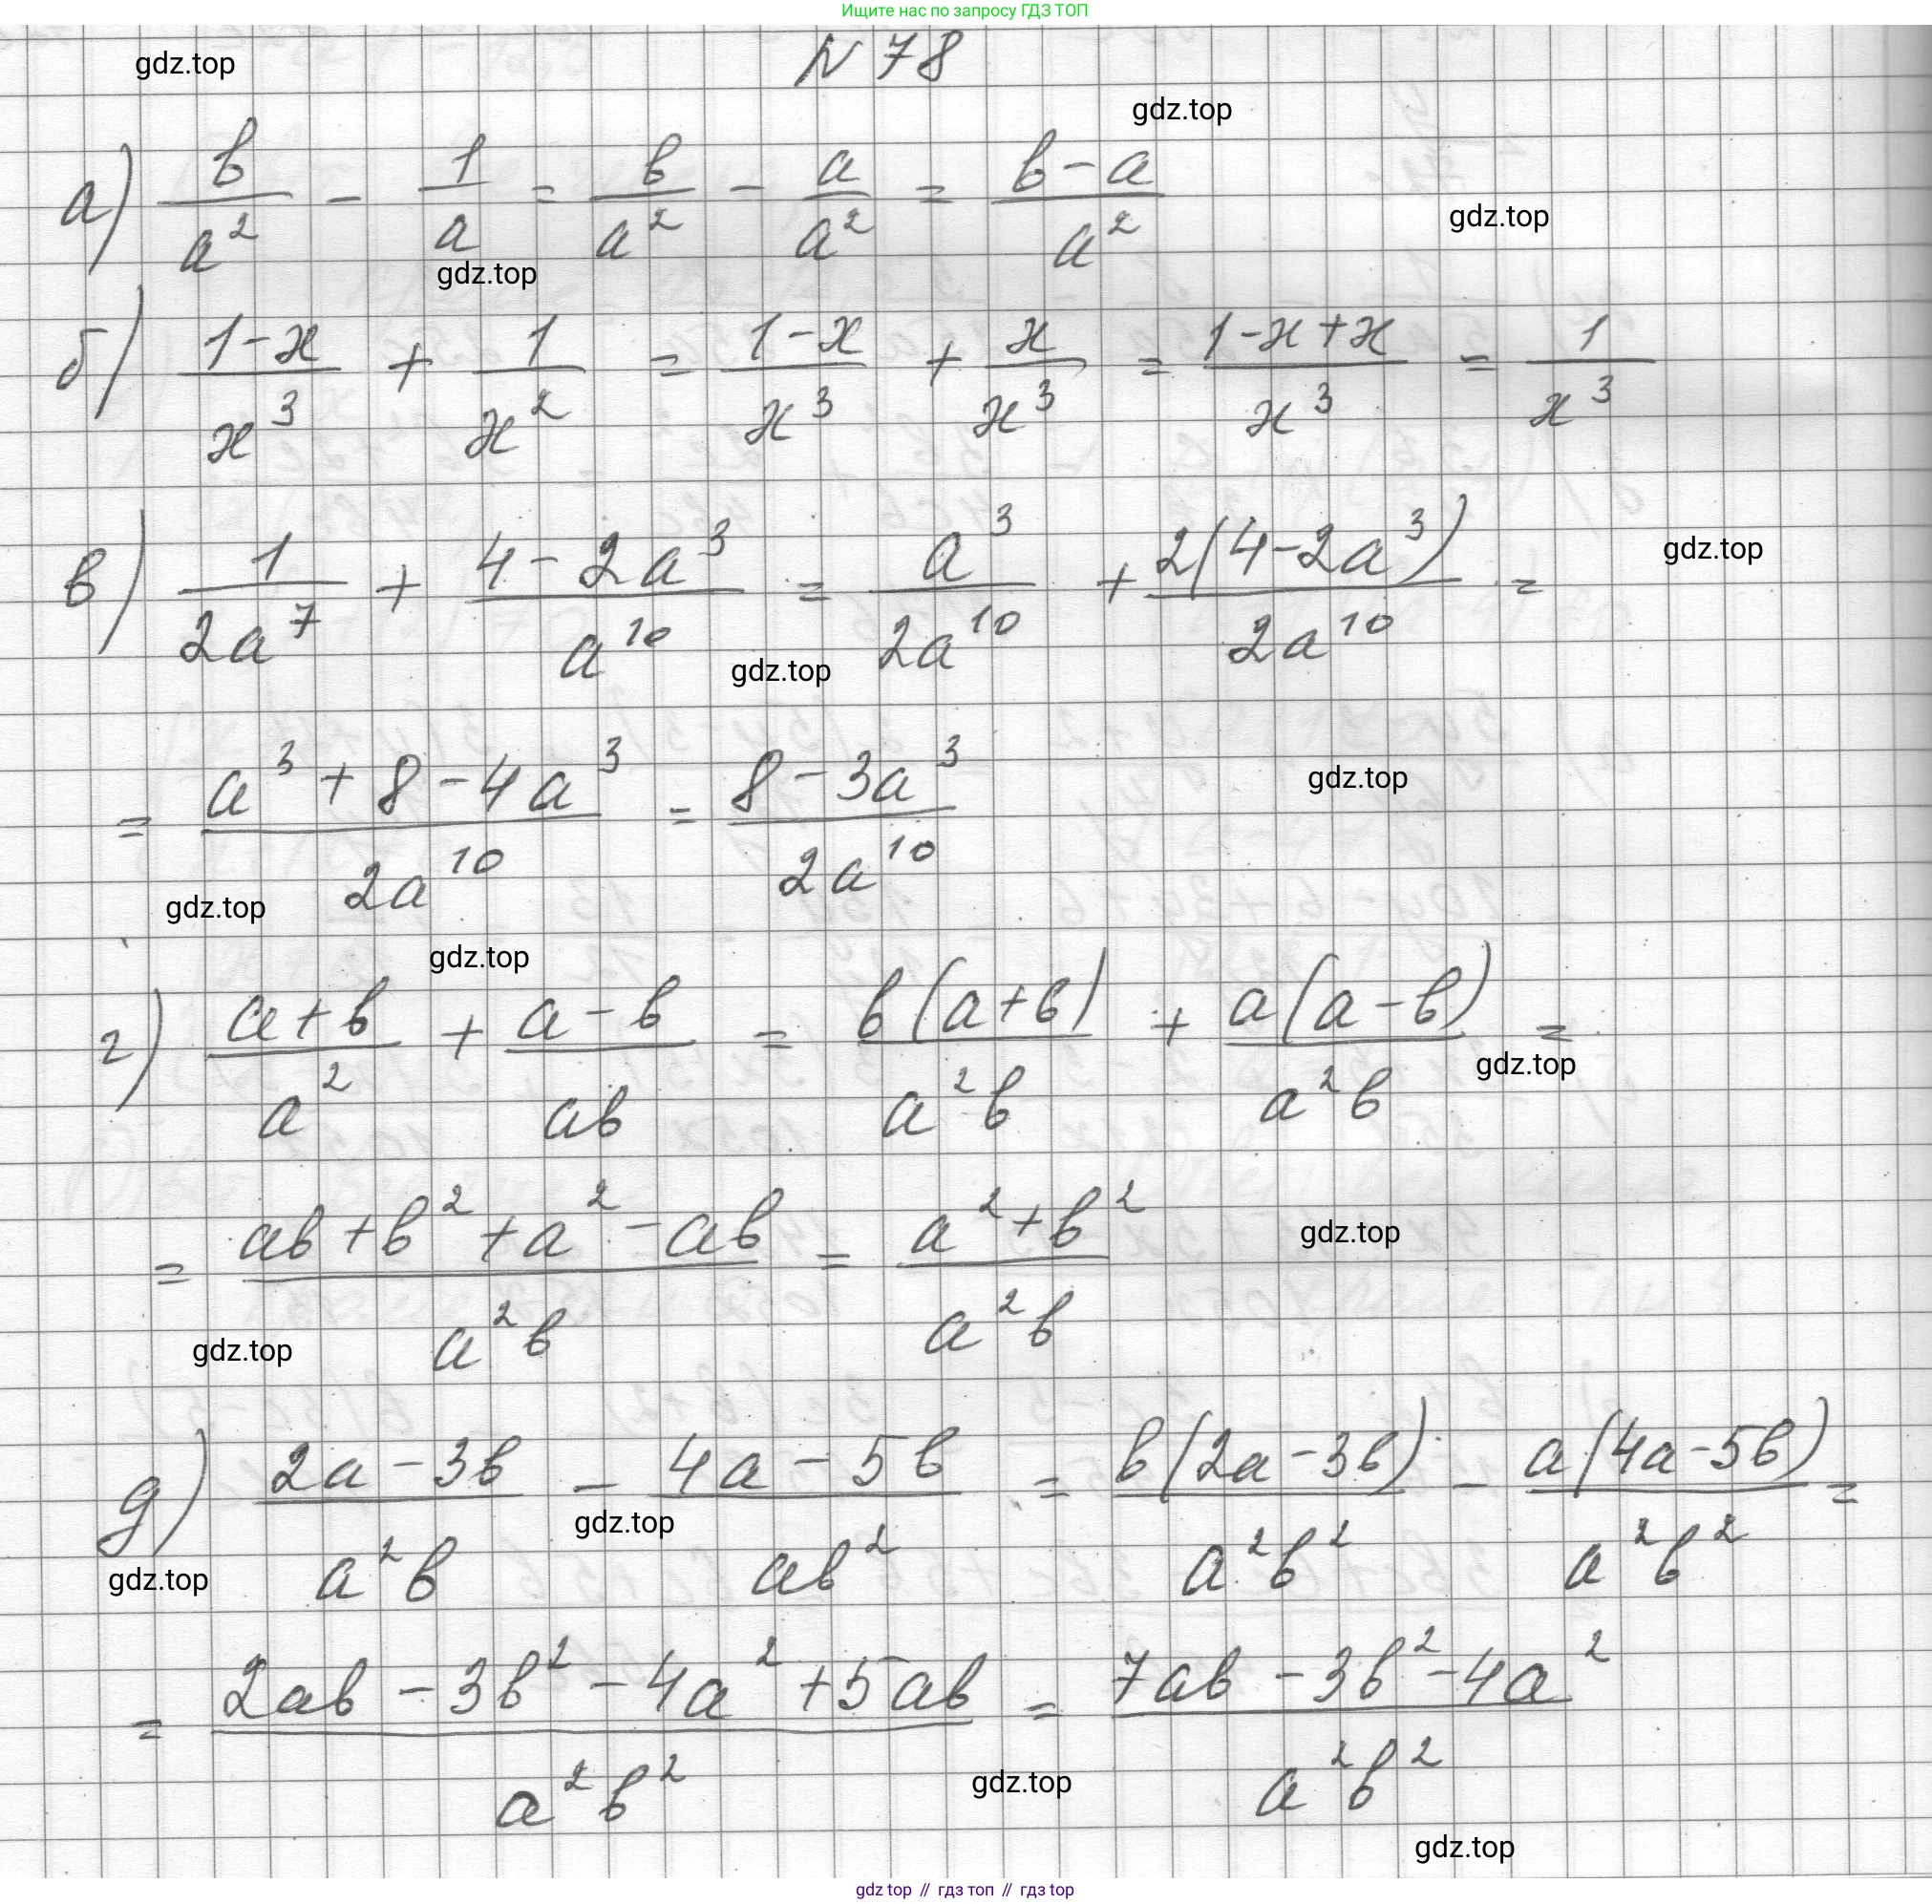 Ищите нас по запросу ГДЗ ТОП
N 78
gdz.top
gdz.top
а) b/a² - 1/a = b/a² - a/a² = (b-a)/a²
gdz.top
gdz.top
б) (1-x)/x³ + 1/x² = (1-x)/x³ + x/x³ = (1-x+x)/x³ = 1/x³
в) 1/(2a⁷) + (4-2a³)/a¹⁰ = a³/(2a¹⁰) + 2(4-2a³)/(2a¹⁰) =
gdz.top
gdz.top
= (a³+8-4a³)/(2a¹⁰) = (8-3a³)/(2a¹⁰)
gdz.top
gdz.top
gdz.top
г) (a+b)/a² + (a-b)/(ab) = b(a+b)/(a²b) + a(a-b)/(a²b) =
gdz.top
= (ab+b²+a²-ab)/(a²b) = (a²+b²)/(a²b)
gdz.top
gdz.top
д) (2a-3b)/(a²b) - (4a-5b)/(ab²) = b(2a-3b)/(a²b²) - a(4a-5b)/(a²b²) =
gdz.top
gdz.top
= (2ab-3b²-4a²+5ab)/(a²b²) = (7ab-3b²-4a²)/(a²b²)
gdz.top
gdz.top
gdz top // гдз топ // гдз top